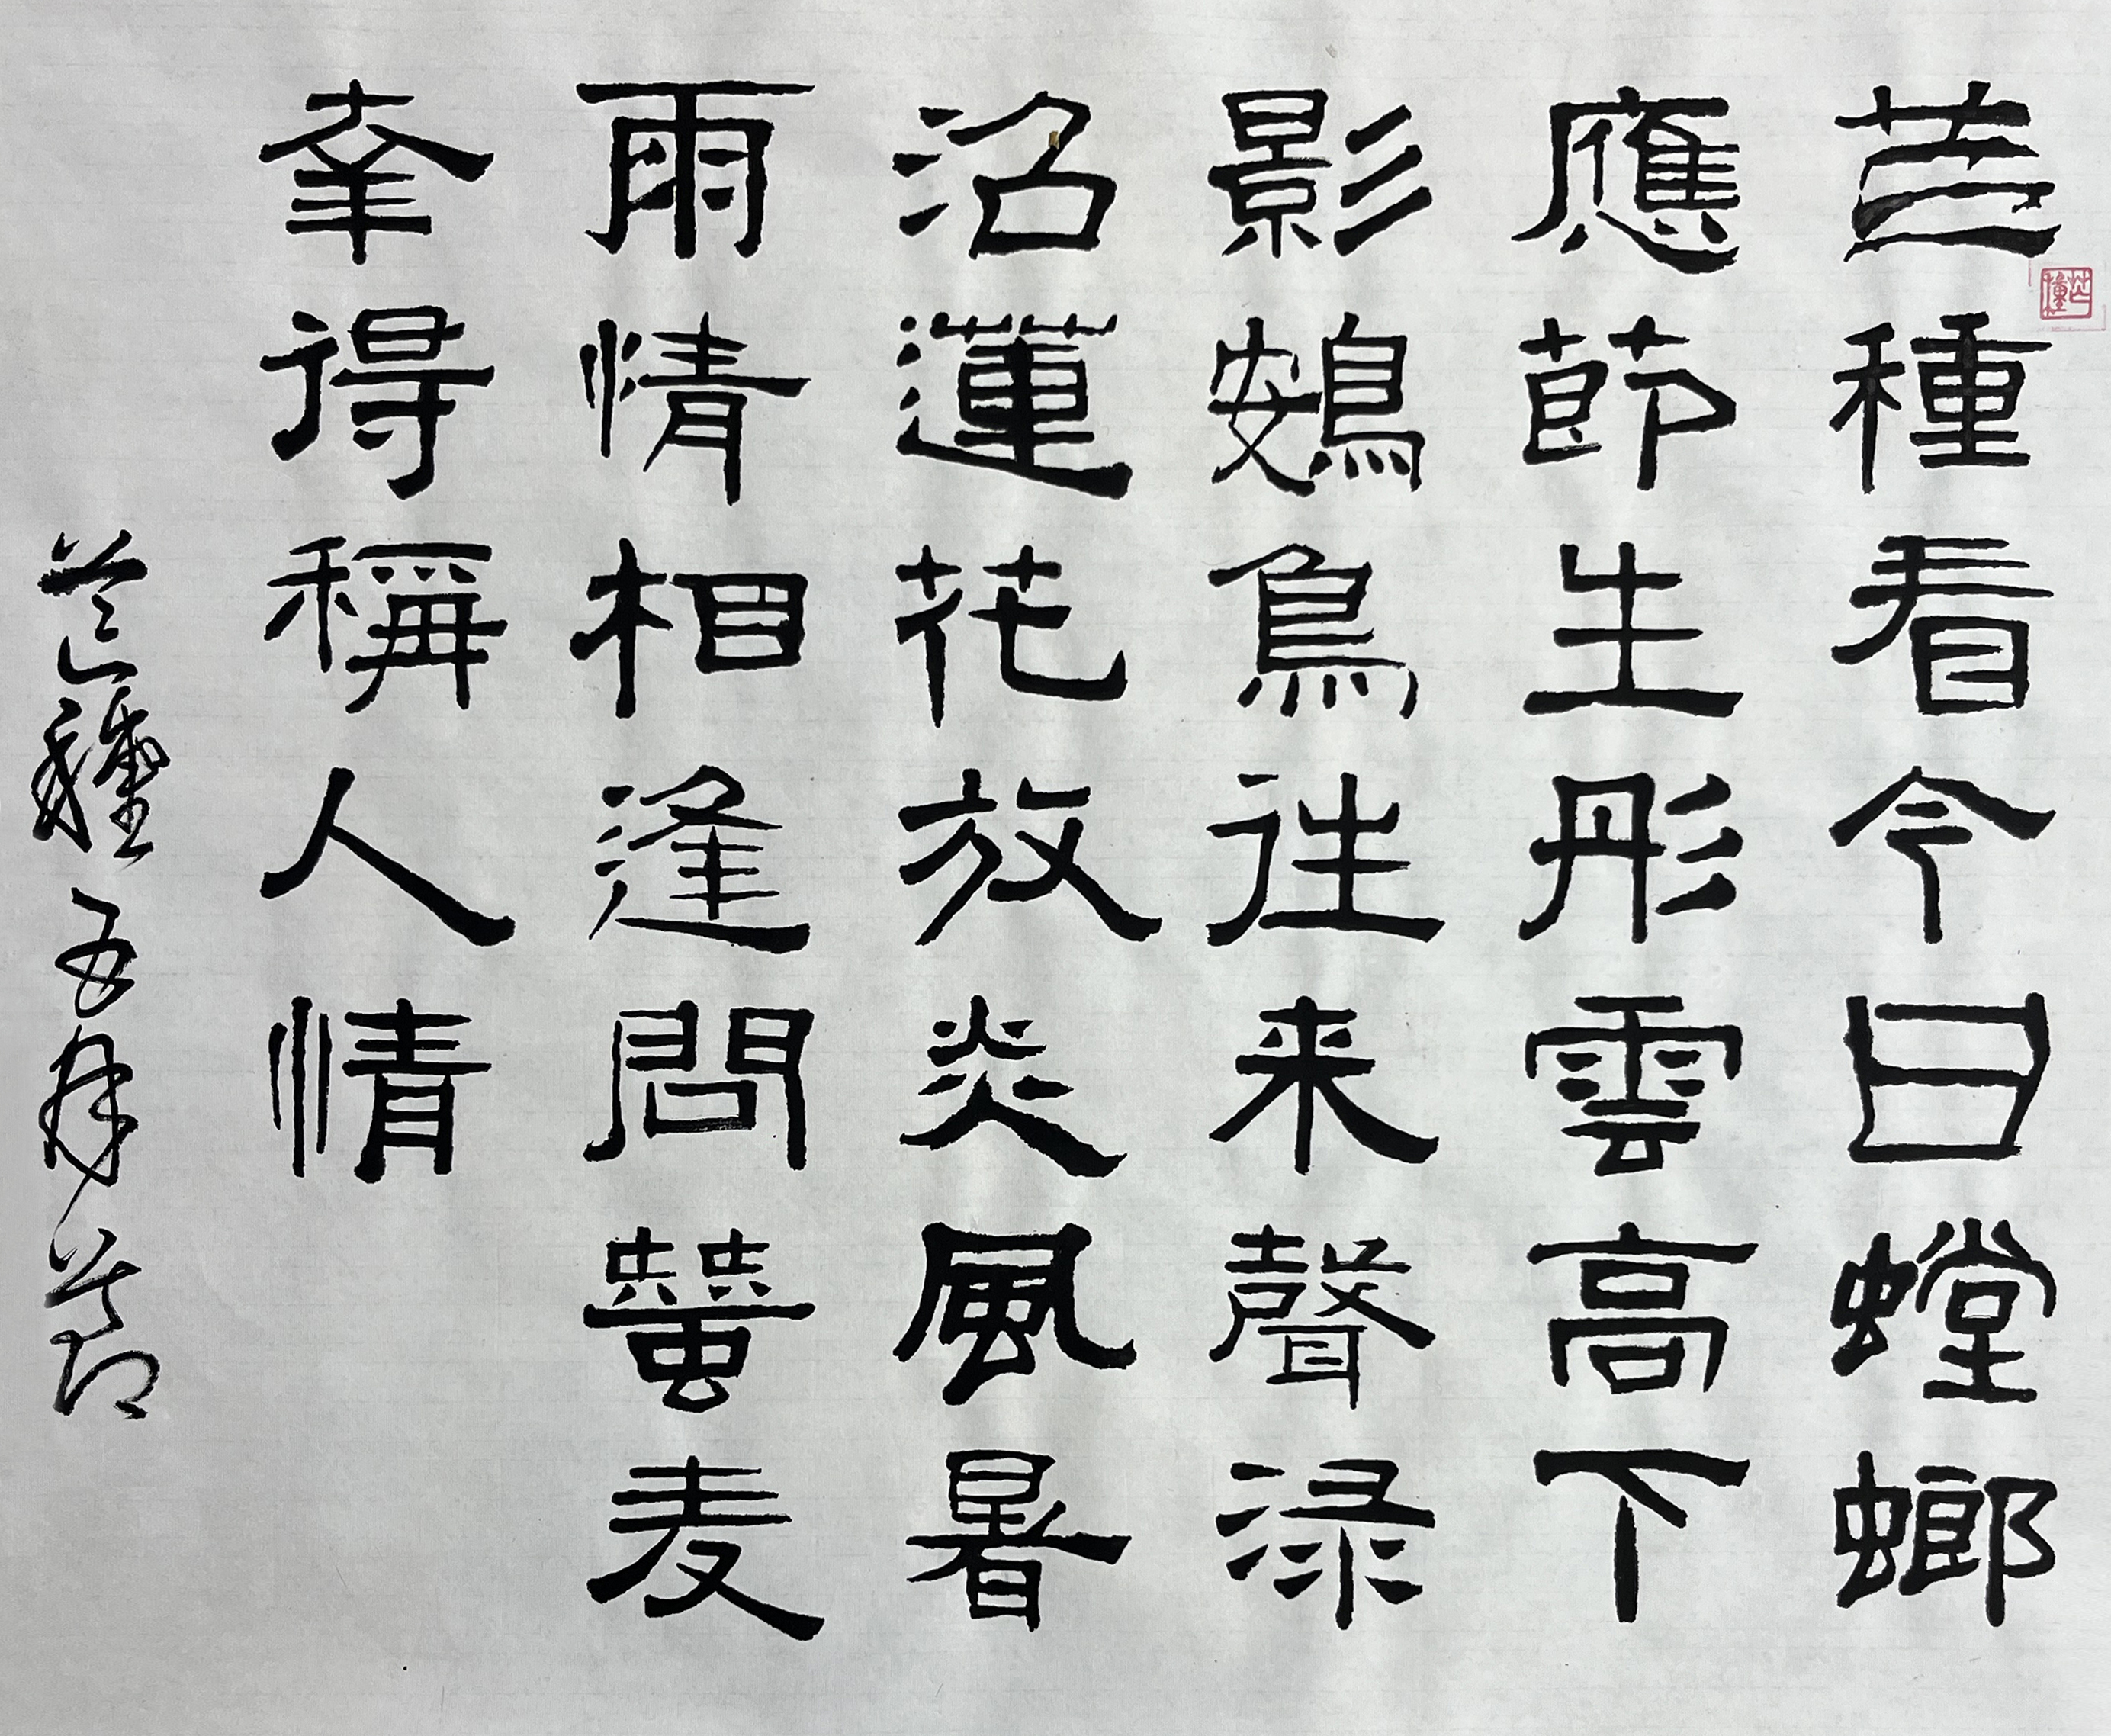 芒種看今日螳螂
應節生彤雲高下
影鴳鳥往来聲渌
沼蓮花放炎風暑
雨情相逢問蠶麦
幸得稱人情
芒種五月節
芒種